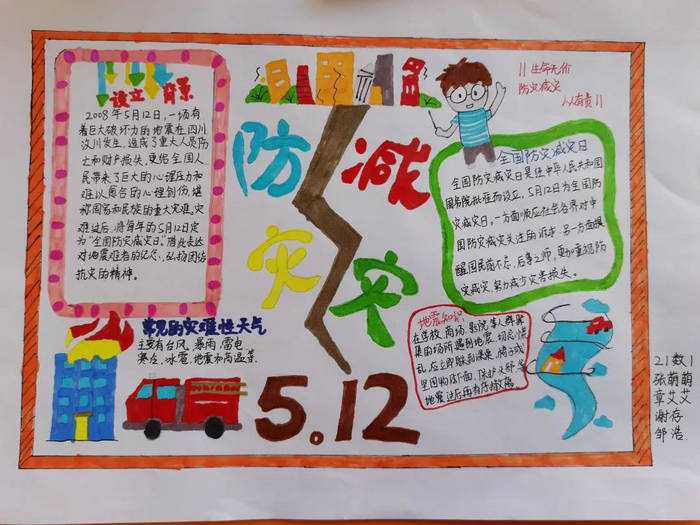 设立背景
2008年5月12日，一场有
着巨大破坏力的地震在四川
汶川发生，造成了重大人员伤
亡和财产损失，更给全国人
民带来了巨大的心理压力和
难以愈合的心理创伤，堪
称国家和民族的重大灾难。灾
难过后，将每年的5月12日定
为"全国防灾减灾日"，借此表达
对地震难者的忆念，弘扬团结
抗灾的精神。
防减
灾灾
5.12
!!生命无价
防灾减灾
人有责!!
全国防灾减灾日
全国防灾减灾日是经中华人民共和国
国务院批准而设立，5月12日为全国防
灾减灾日，一方面顺应社会各界对中
国防灾减灾关注的诉求，另一方面提
醒国民前事不忘、后事之师，更加重视防
灾减灾，努力减少灾害损失。
常见的灾难性天气
主要有台风、暴雨、雷电
寒冷、冰雹、地震和高温等。
地震知识
在学校、商场、影院等人群聚
集的场所遇到地震，切忌慌
乱，应立即躲到课桌、椅子或
坚固物品下面，
地震过后再有序撤离
21数1
张萌萌
章艾艾
谢存
邹浩